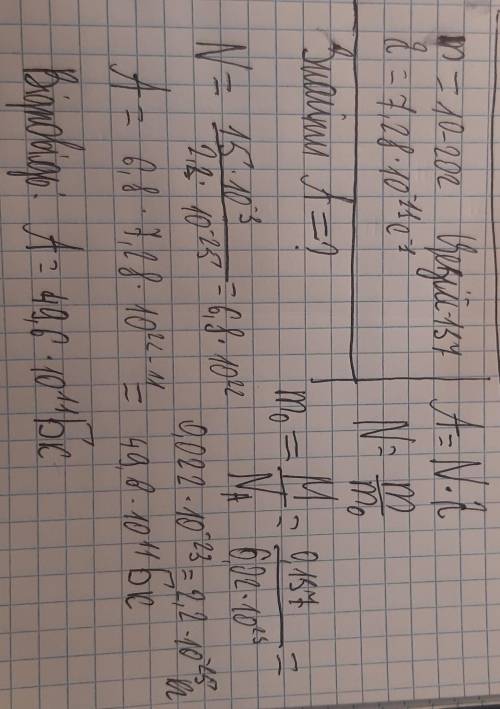 m = 10-20г Цезій-137
λ = 7,28·10⁻¹¹с⁻¹
Знайти A = ?
A = N·λ
N = m/m₀
m₀ = M/N_A = 0,137/6,02·10²³ =
0,022·10⁻²³ = 2,2·10⁻²⁵ кг
N = 15·10⁻³/2,2·10⁻²⁵ = 6,8·10²²
A = 6,8·7,28·10²²⁻¹¹ = 49,8·10¹¹ Бк
Відповідь: A = 49,6·10¹¹ Бк